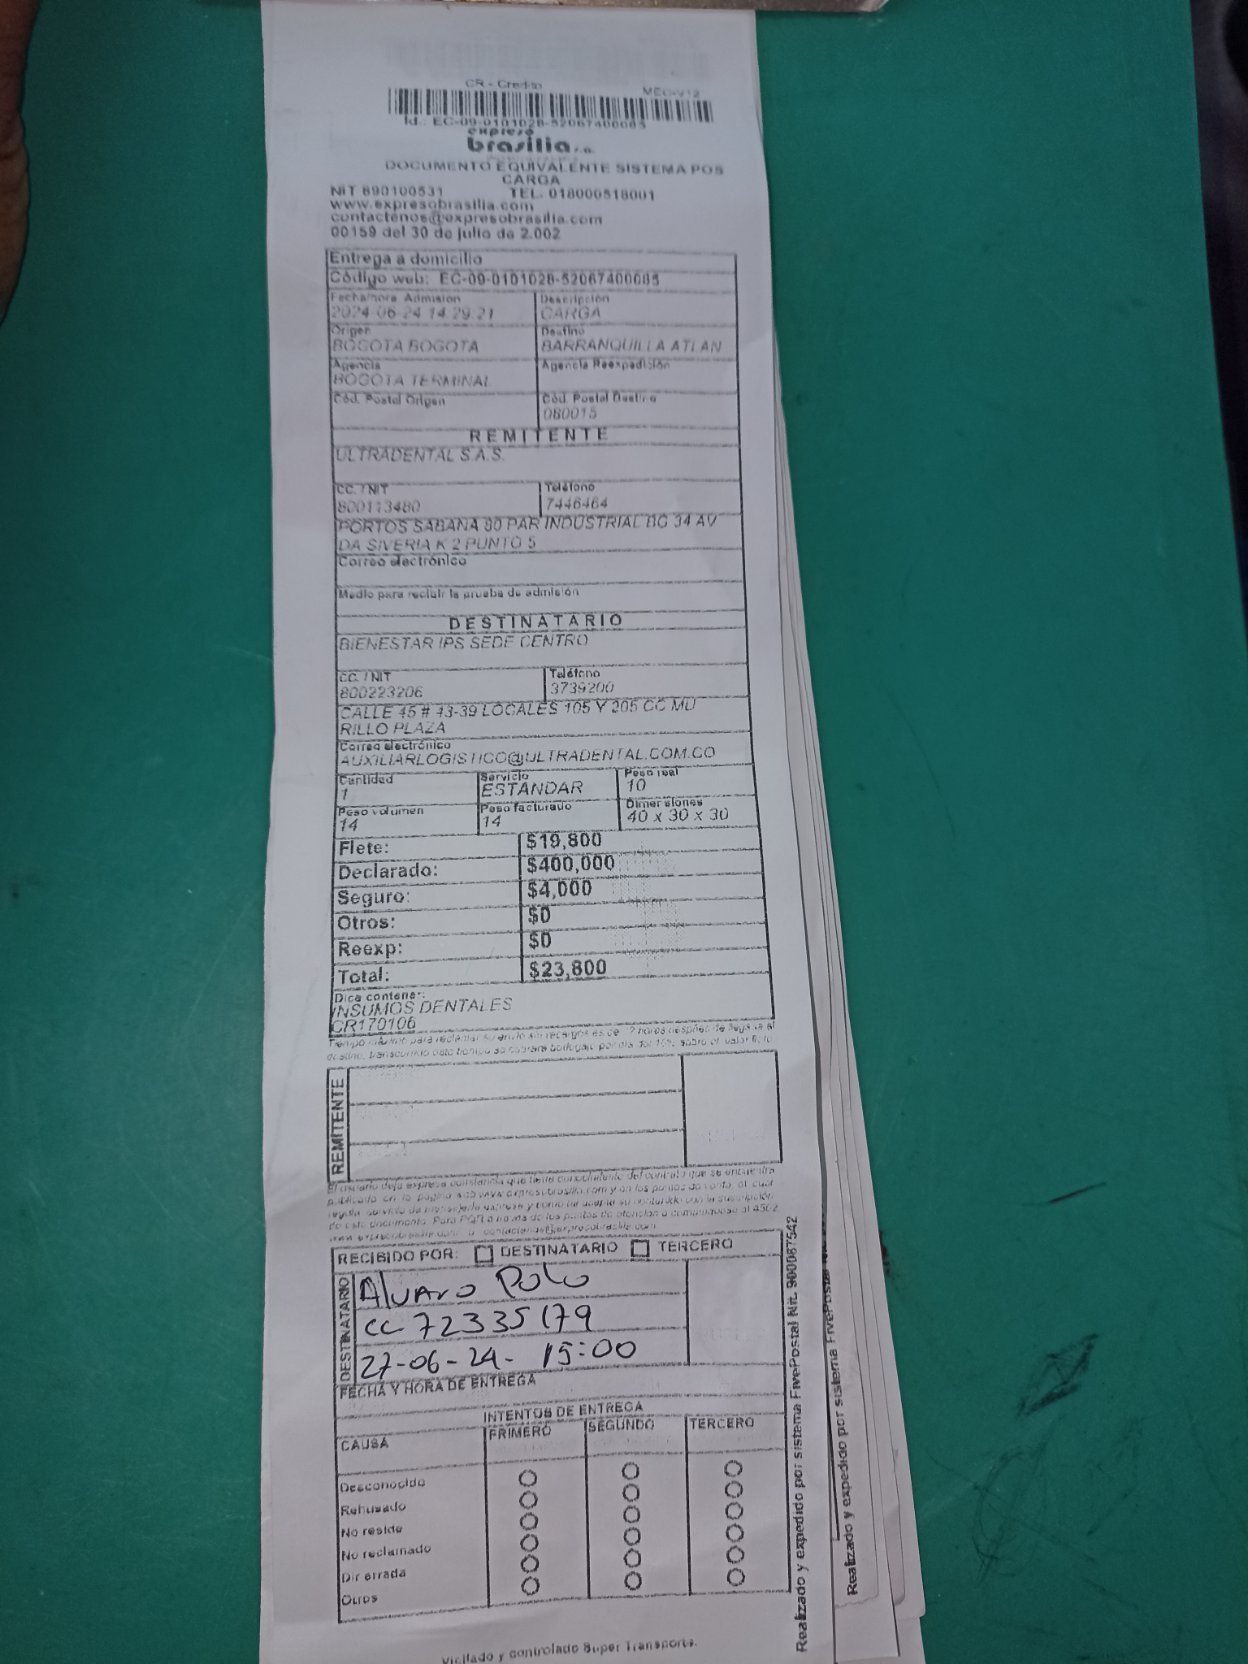 CR - Credito
MEC-V12
Id.: EC-09-0101028-52067400085
expreso
brasilia s.a.
DOCUMENTO EQUIVALENTE SISTEMA POS
CARGA
NIT 890100531 TEL. 018000518001
www.expresobrasilia.com
contactenos@expresobrasilia.com
00159 del 30 de julio de 2.002
Entrega a domicilio
Código web: EC-09-0101028-52067400085
Fecha/hora Admisión Descripción
2024-06-24 14:29:21 CARGA
Origen Destino
BOGOTA BOGOTA BARRANQUILLA ATLAN
Agencia Agencia Reexpedición
BOGOTA TERMINAL
Cód. Postal Origen Cód. Postal Destino
080015
REMITENTE
ULTRADENTAL S.A.S.
CC. / NIT Teléfono
800113480 7446464
PORTOS SABANA 80 PAR INDUSTRIAL BG 34 AV
DA SIVERIA K 2 PUNTO 5
Correo electrónico
Medio para recibir la prueba de admisión
DESTINATARIO
BIENESTAR IPS SEDE CENTRO
CC. / NIT Teléfono
800223206 3739200
CALLE 45 # 43-39 LOCALES 105 Y 205 CC MU
RILLO PLAZA
Correo electrónico
AUXILIARLOGISTICO@ULTRADENTAL.COM.CO
Cantidad Servicio Peso real
1 ESTANDAR 10
Peso volumen Peso facturado Dimensiones
14 14 40 x 30 x 30
Flete: $19,800
Declarado: $400,000
Seguro: $4,000
Otros: $0
Reexp: $0
Total: $23,800
Dice contener:
INSUMOS DENTALES
CR170106
Tiempo máximo para reclamar su envío sin recargos es de 72 horas después de llegada al
destino, transcurrido este tiempo se cobrará bodegaje por día del 15% sobre el valor flete
REMITENTE
El usuario deja expresa constancia que tiene conocimiento del contrato que se encuentra
publicado en la página web www.expresobrasilia.com y en los puntos de venta, el cual
regula
de este documento. Para PQR
RECIBIDO POR: DESTINATARIO TERCERO
DESTINATARIO
Alvaro Polo
CC 72335179
27-06-24- 15:00
FECHA Y HORA DE ENTREGA
INTENTOS DE ENTREGA
CAUSA PRIMERO SEGUNDO TERCERO
Desconocido
Rehusado
No reside
No reclamado
Dir errada
Otros
Vigilado y controlado Super Transporte.
Realizado y expedido por sistema FivePostal Nit. 900087542
Realizado y expedido por sistema FivePostal